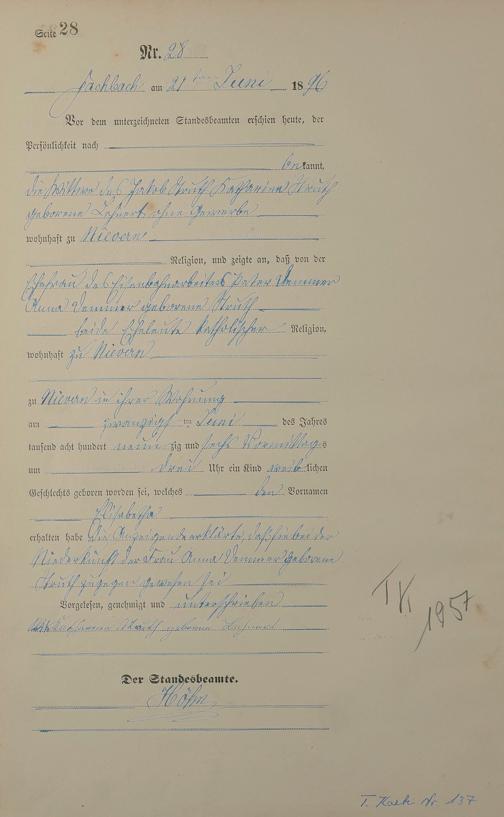 Seite 28
Nr. 28
Fachbach am 21 ten Juni 1896
Vor dem unterzeichneten Standesbeamten erschien heute, der
Persönlichkeit nach
bekannt,
die Wittwe des Jakob Struth Katharina Struth
geborene Lehnert ohne Gewerbe
wohnhaft zu Nievern
Religion, und zeigte an, daß von der
Ehefrau des Eisenbahnarbeiters Peter Demmer
Anna Demmer geborene Struth
beide Eheleute katholischer Religion,
wohnhaft zu Nievern
zu Nievern in ihrer Wohnung
am zwanzigsten Juni des Jahres
tausend acht hundert neunzig und sechs Vormittags
um drei Uhr ein Kind weiblichen
Geschlechts geboren worden sei, welches den Vornamen
Elisabetha
erhalten habe die Anzeigende erklärte, daß sie bei der
Niederkunft der Frau Anna Demmer geborene
Struth zugegen gewesen sei
Vorgelesen, genehmigt und unterschrieben
Katharina Struth geborene Lehnert
Der Standesbeamte.
Höhn
1957
T. Kath Nr. 137